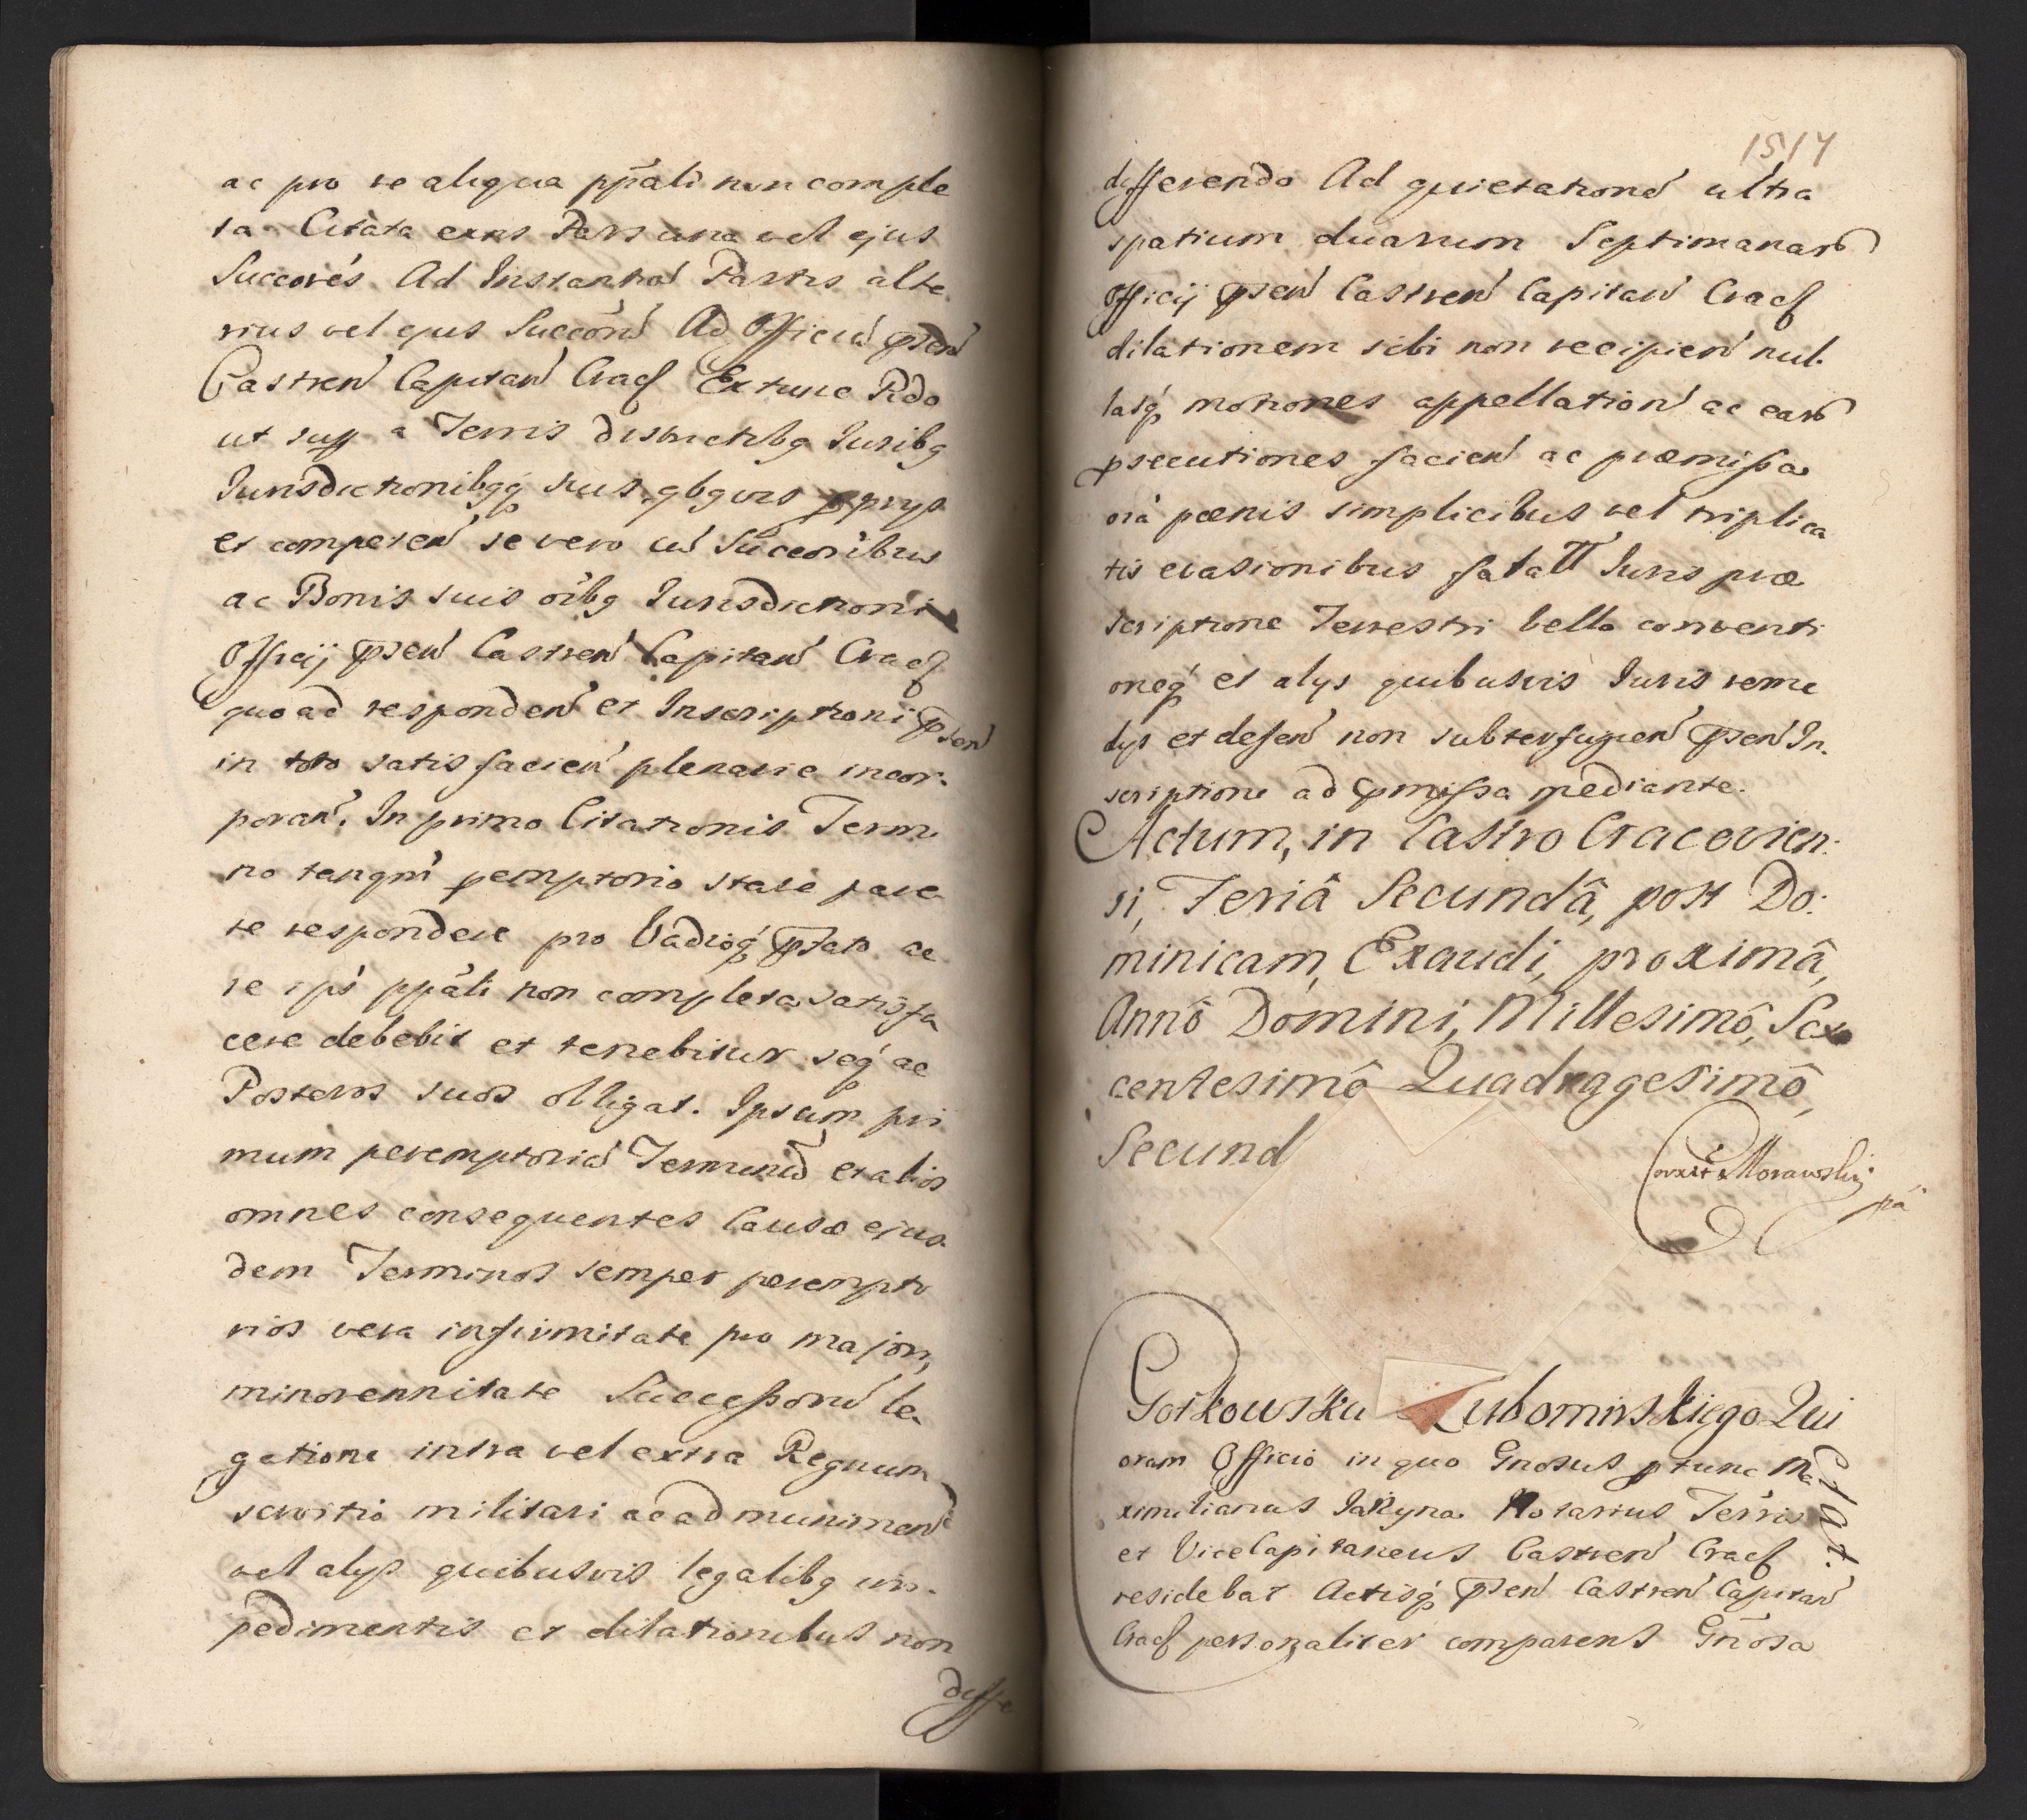 ac pro re aliqua ppāli non comple
ta Citata exns Pars una vel ejus
Succorés Ad Instantiā Partis alte
rius vel ejus Succorū Ad Officiū pseñ
Castreñ Capitañ Cracẜ Extunc Rdo
ut sup a Terris districtibq Juribq
Jurisdictionibqq suis qbqvis pprys
et competeñ se vero cū Succoribus
ac Bonis suis oībq Jurisdictioni
Officij pseñ Castreñ Capitañ Cracẜ
quoad respondeñ et Inscriptioni pseñ
in toto satisfacieñ plenarie incor-
porañ. In primo Citationis Term
no tanqm̄ pemptorio stare pare
re respondere pro Vadioq pfato ac
re ips ppāli non completa satisfa
cere debebit et tenebitur seq ac
Posteros suos obligat. Ipsum pri
mum peremptoriū Terminū et alios
omnes consequentes Causæ ejus-
dem Terminos semper perempto
rios vera infirmitate pro majori,
minorennitate Successorū le-
gatione intra vel extra Regnum
servitio militari ac ad munimeñ
vel alys quibusvis legalibq im-
pedimentis et dilationibus non
diffe
1517
differendo Ad quietationē ultra
spatium duarum Septimanarō
Officij pseñ Castreñ Capitañ Cracẜ
dilationem sibi non recipieñ nul-
lasq motiones appellationū ac earō
psecutiones facieñ ac præmissa
oīa pœnis simplicibus vel triplica
tis evasionibus fatalī Juris præ
scriptione Terrestri bello conventi
oneq et alys quibusvis Juris reme
dys et defeñ non subterfugieñ pseñ In-
scriptione ad pmissa mediante.
Actum, in Castro Cracovien:
si, Feriâ Secundâ, post Do:
minicam, Exaudi, proximâ,
Annô Domini, Millesimô, Sex
centesimô Quadragesimô,
Secund
Morawski
pā
Gorkowska Lubomirskiego Qui
etat.
oram Officio in quo Gnosus ptunc Ma
ximilianus Jakyna Notarius Terris
et ViceCapitaneus Castreñ Cracẜ
residebat Actisq pseñ Castreñ Capitañ
Cracẜ personaliter comparens Gñosa